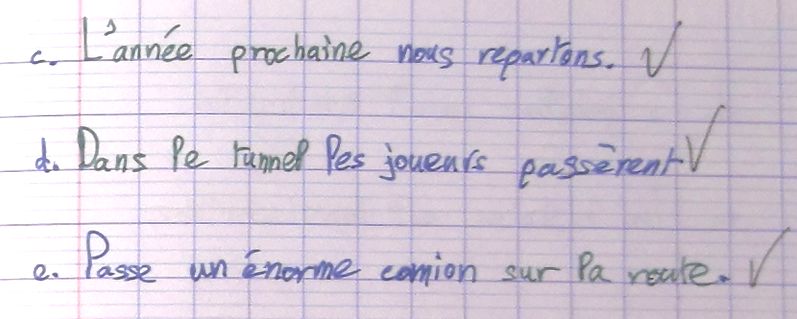 c. L'année prochaine nous repartons. ✓
d. Dans le tunnel les joueurs passèrent ✓
e. Passe un énorme camion sur la route. ✓